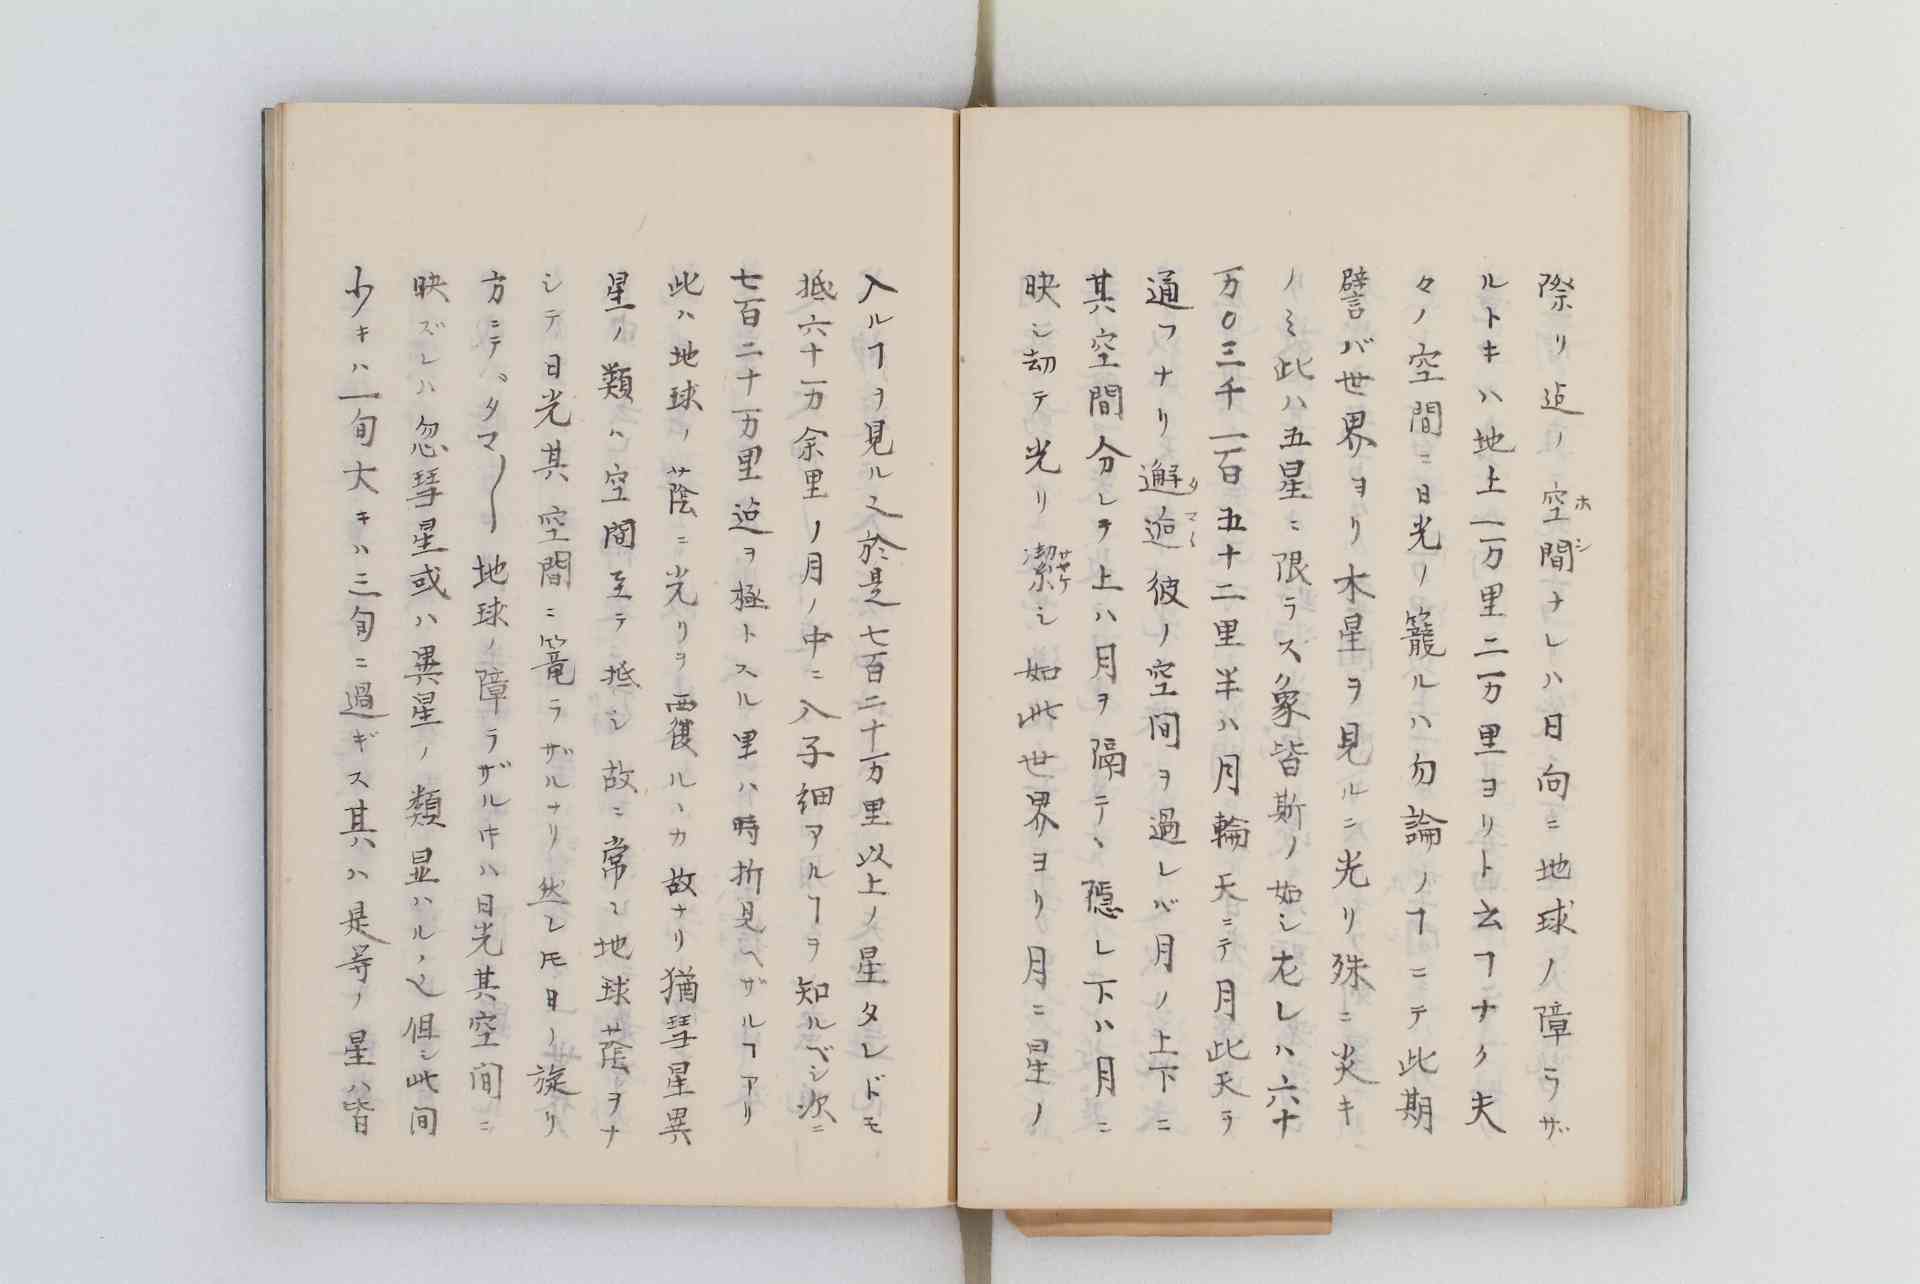 際リ迠ノ空間ナレハ日向ニ地球ノ障ラザ
ホシ
ルトキハ地上一万里二万里ヨリト云ヿナク夫
々ノ空間ニ日光ノ籠ルハ勿論ノヿニテ此期
譬バ世界ヨリ木星ヲ見ルニ光リ殊ニ炎キ
ノミ此ハ五星ニ限ラス象皆斯ノ如シ左レハ六十
万〇三千一百五十二里半ハ月輪天ニテ月此天ヲ
通フナリ邂逅彼ノ空间ヲ過レバ月ノ上下ニ
タマ〱
其空間分レテ上ハ月ヲ隔テヽ隱レ下ハ月ニ
映シ却テ光リ潔シ如此世界ヨリ月ニ星ノ
サヤケ
入ルヿヲ見ル之於是七百二十万里以上ノ星タレドモ
抵六十万余里ノ月ノ中ニ入子細アルヿヲ知ルベシ次ニ
七百二十万里迠ヲ極トスル里ハ時折見ヘザルヿアリ
此ハ地球ノ蔭ニ光リヲ覆ルヽカ故ナリ猶彗星異
星ノ類ハ空間至テ抵シ故ニ常ニ地球蔭ヲナ
シテ日光其空間ニ篭ラザルナリ然レ𪜈日ノ旋リ
方ニテ、タマ〱地球ノ障ラザル𪜈ハ日光其空间ニ
映ズレハ忽彗星或ハ異星ノ類显ハルヽ也但シ此间
少キハ一旬大キハ三旬ニ過ギス其ハ是等ノ星ハ皆